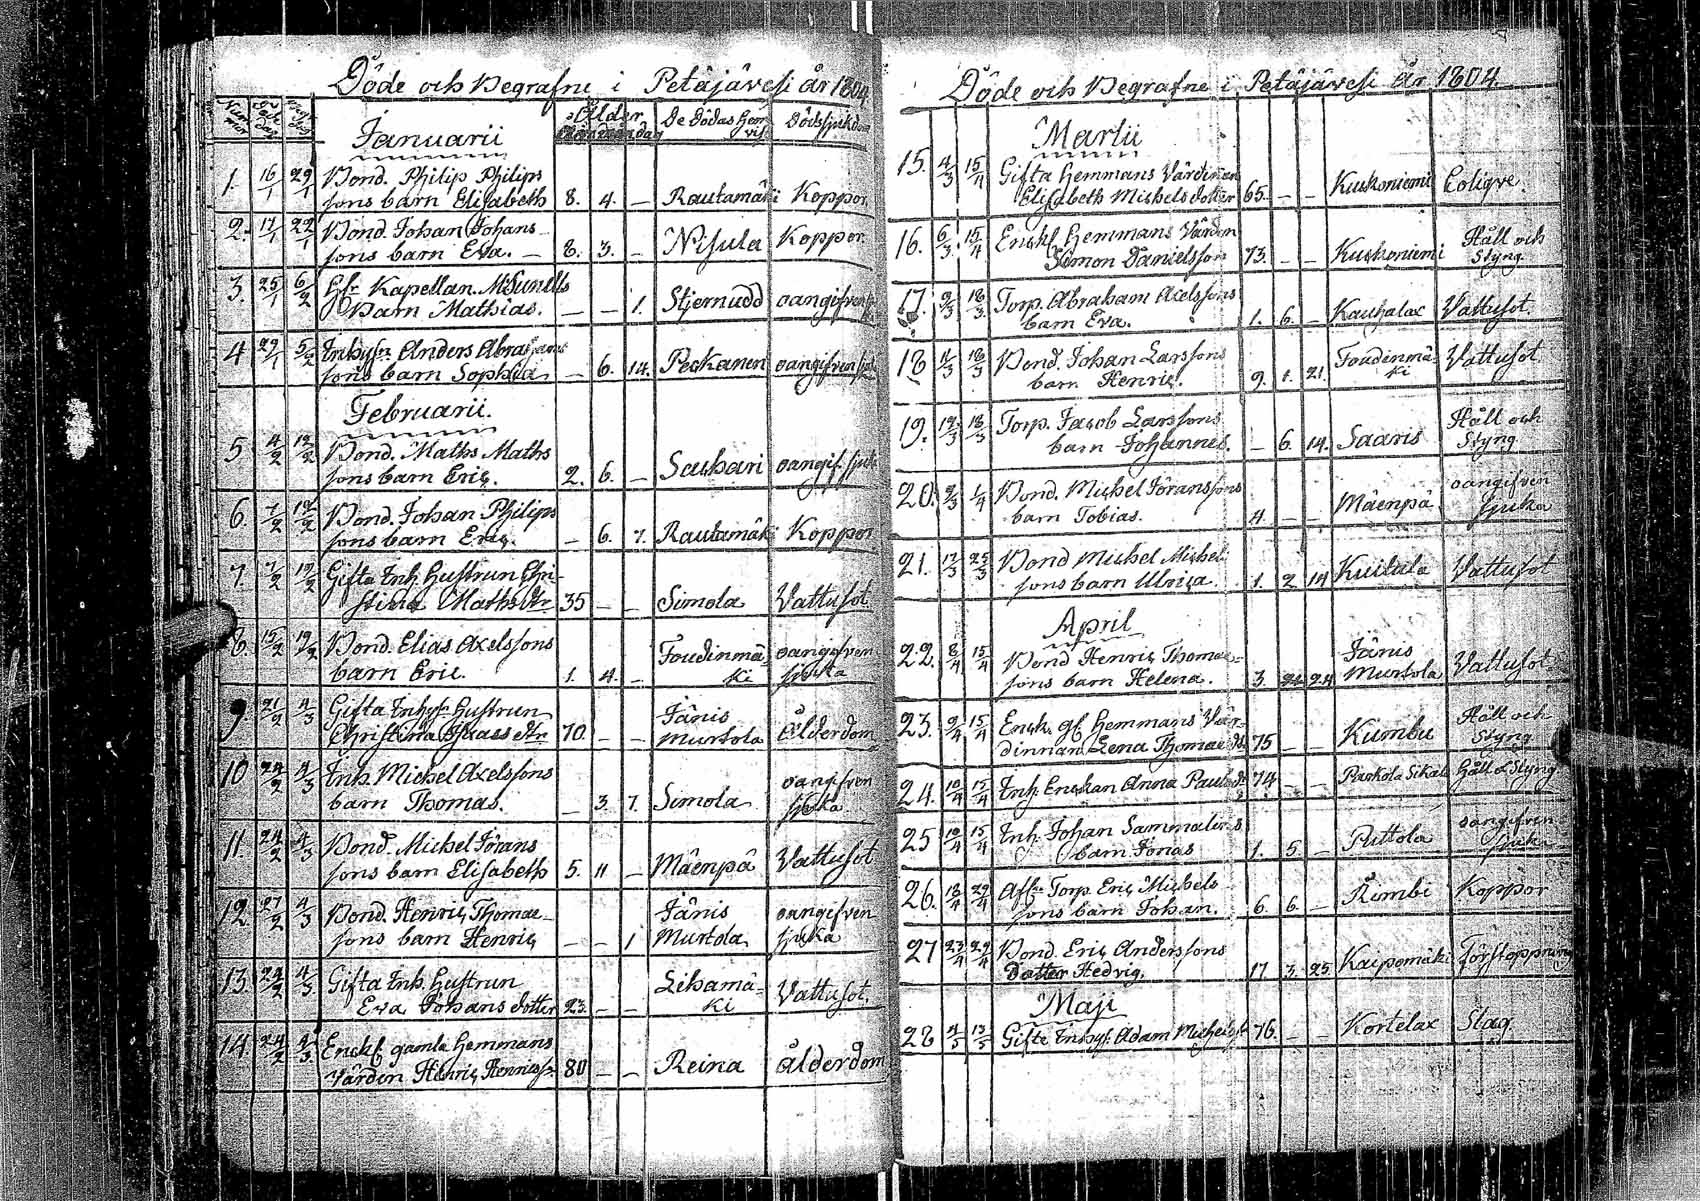 Döde och Begrafne i Petäjävesi år 1804
Januarii
Ålder
De Dödas Hemvist
Dödssjukdom
1. 16/1 29/1 Bond. Philip Philips
sons barn Elisabeth 8. 4. — Rautamäki Koppor
2. 17/1 22/1 Bond. Johan Johans
sons barn Eva. — 8. 3. — Nisula Koppor
3. 25/1 6/2 Kapellan. M Sundells
Barn Mathias. — — 1. Stjernudd oangifven
4 29/1 5/2 Inhys. Anders Abrahams
sons barn Sophia — 6. 14. Peckanen oangifven sjuk
Februarii.
5 4/2 12/2 Bond. Maths Maths
sons barn Eric. 2. 6. — Sachari oangif. sjuk
6. 7/2 12/2 Bond. Johan Philips
sons barn Eric. — 6. 7. Rautamäki Koppor
7. 7/2 19/2 Gifta Inh. Hustrun Chri-
stina Maths dtr 35 — — Simola Vattusot
8. 15/2 19/2 Bond. Elias Axelssons
barn Eric. 1. 4. — Toudinmä-
ki oangifven
sjuka
9. 21/2 4/3 Gifta Inhys Hustrun
Christina dtr 70. — — Jänis
Murtola Ålderdom
10 24/2 4/3 Inh. Michel Axelssons
barn Thomas. — 3. 7. Simola oangifven
sjuka
11. 24/2 4/3 Bond. Michel Jörans
sons barn Elisabeth 5. 11 — Mäenpä Vattusot
12. 27/2 4/3 Bond. Henric Thomae-
sons barn Henric — — 1 Jänis
Murtola oangifven
sjuka
13. 24/2 4/3 Gifta Inh. Hustrun
Eva Johans dotter 23. — — Lihamä-
ki Vattusot.
14. 24/2 4/3 Enckl gamla Hemmans
Värden Henric Henricss. 80 — — Reina Ålderdom
Döde och Begrafne i Petäjävesi År 1804.
Martii
15. 4/3 15/4 Gifta Hemmans Värdinnan
Elisabeth Michels dotter 65. — — Kuckoniemi Colique
16. 6/3 15/4 Enckl Hemmans Värden
Simon Danielsson 73. — — Kuckoniemi Håll och
Styng
17. 9/3 18/3 Torp. Abraham Axelssons
barn Eva. 1. 6. — Kauhalax Vattusot.
18 11/3 18/3 Bond. Johan Larssons
barn Henric. 9. 1. 21. Toudinmä-
ki Vattusot
19. 12/3 18/3 Torp. Jacob Larssons
barn Johannes. — 6. 14. Saaris Håll och
Styng
20. 9/3 1/4 Bond. Michel Jöranssons
barn Tobias. 4. — — Mäenpä oangifven
sjuka
21. 17/3 25/3 Bond Michel Michel
sons barn Ulrica 1. 2 14 Kuitula Vattusot
April
22. 8/4 15/4 Bond Henric Thomae-
sons barn Helena. 3. 24 Jänis
Murtola Vattusot
23. 9/4 15/4 Enck. gl Hemmans Vär-
dinnan Lena Thomae dr 75 — — Kumbu Håll och
Styng
24. 10/4 15/4 Inh. Enckan Anna Pauls dr 74 — — Håll o Styng
25 10/4 15/4 Inh. Johan Sammalers
barn Jonas 1. 5. — Puttola oangifven
sjuka
26. 18/4 29/4 Afl. Torp. Eric Michels-
sons barn Johan. 6. 6. — Rimbi Koppor
27 23/4 29/4 Bond. Eric Anderssons
dotter Hedvig. 17 3. 25 Kaipomäki Förstoppning
Maji
28 4/5 13/5 Gifte Inhys. Adam Michelss. 76. — — Kortelax Slag.